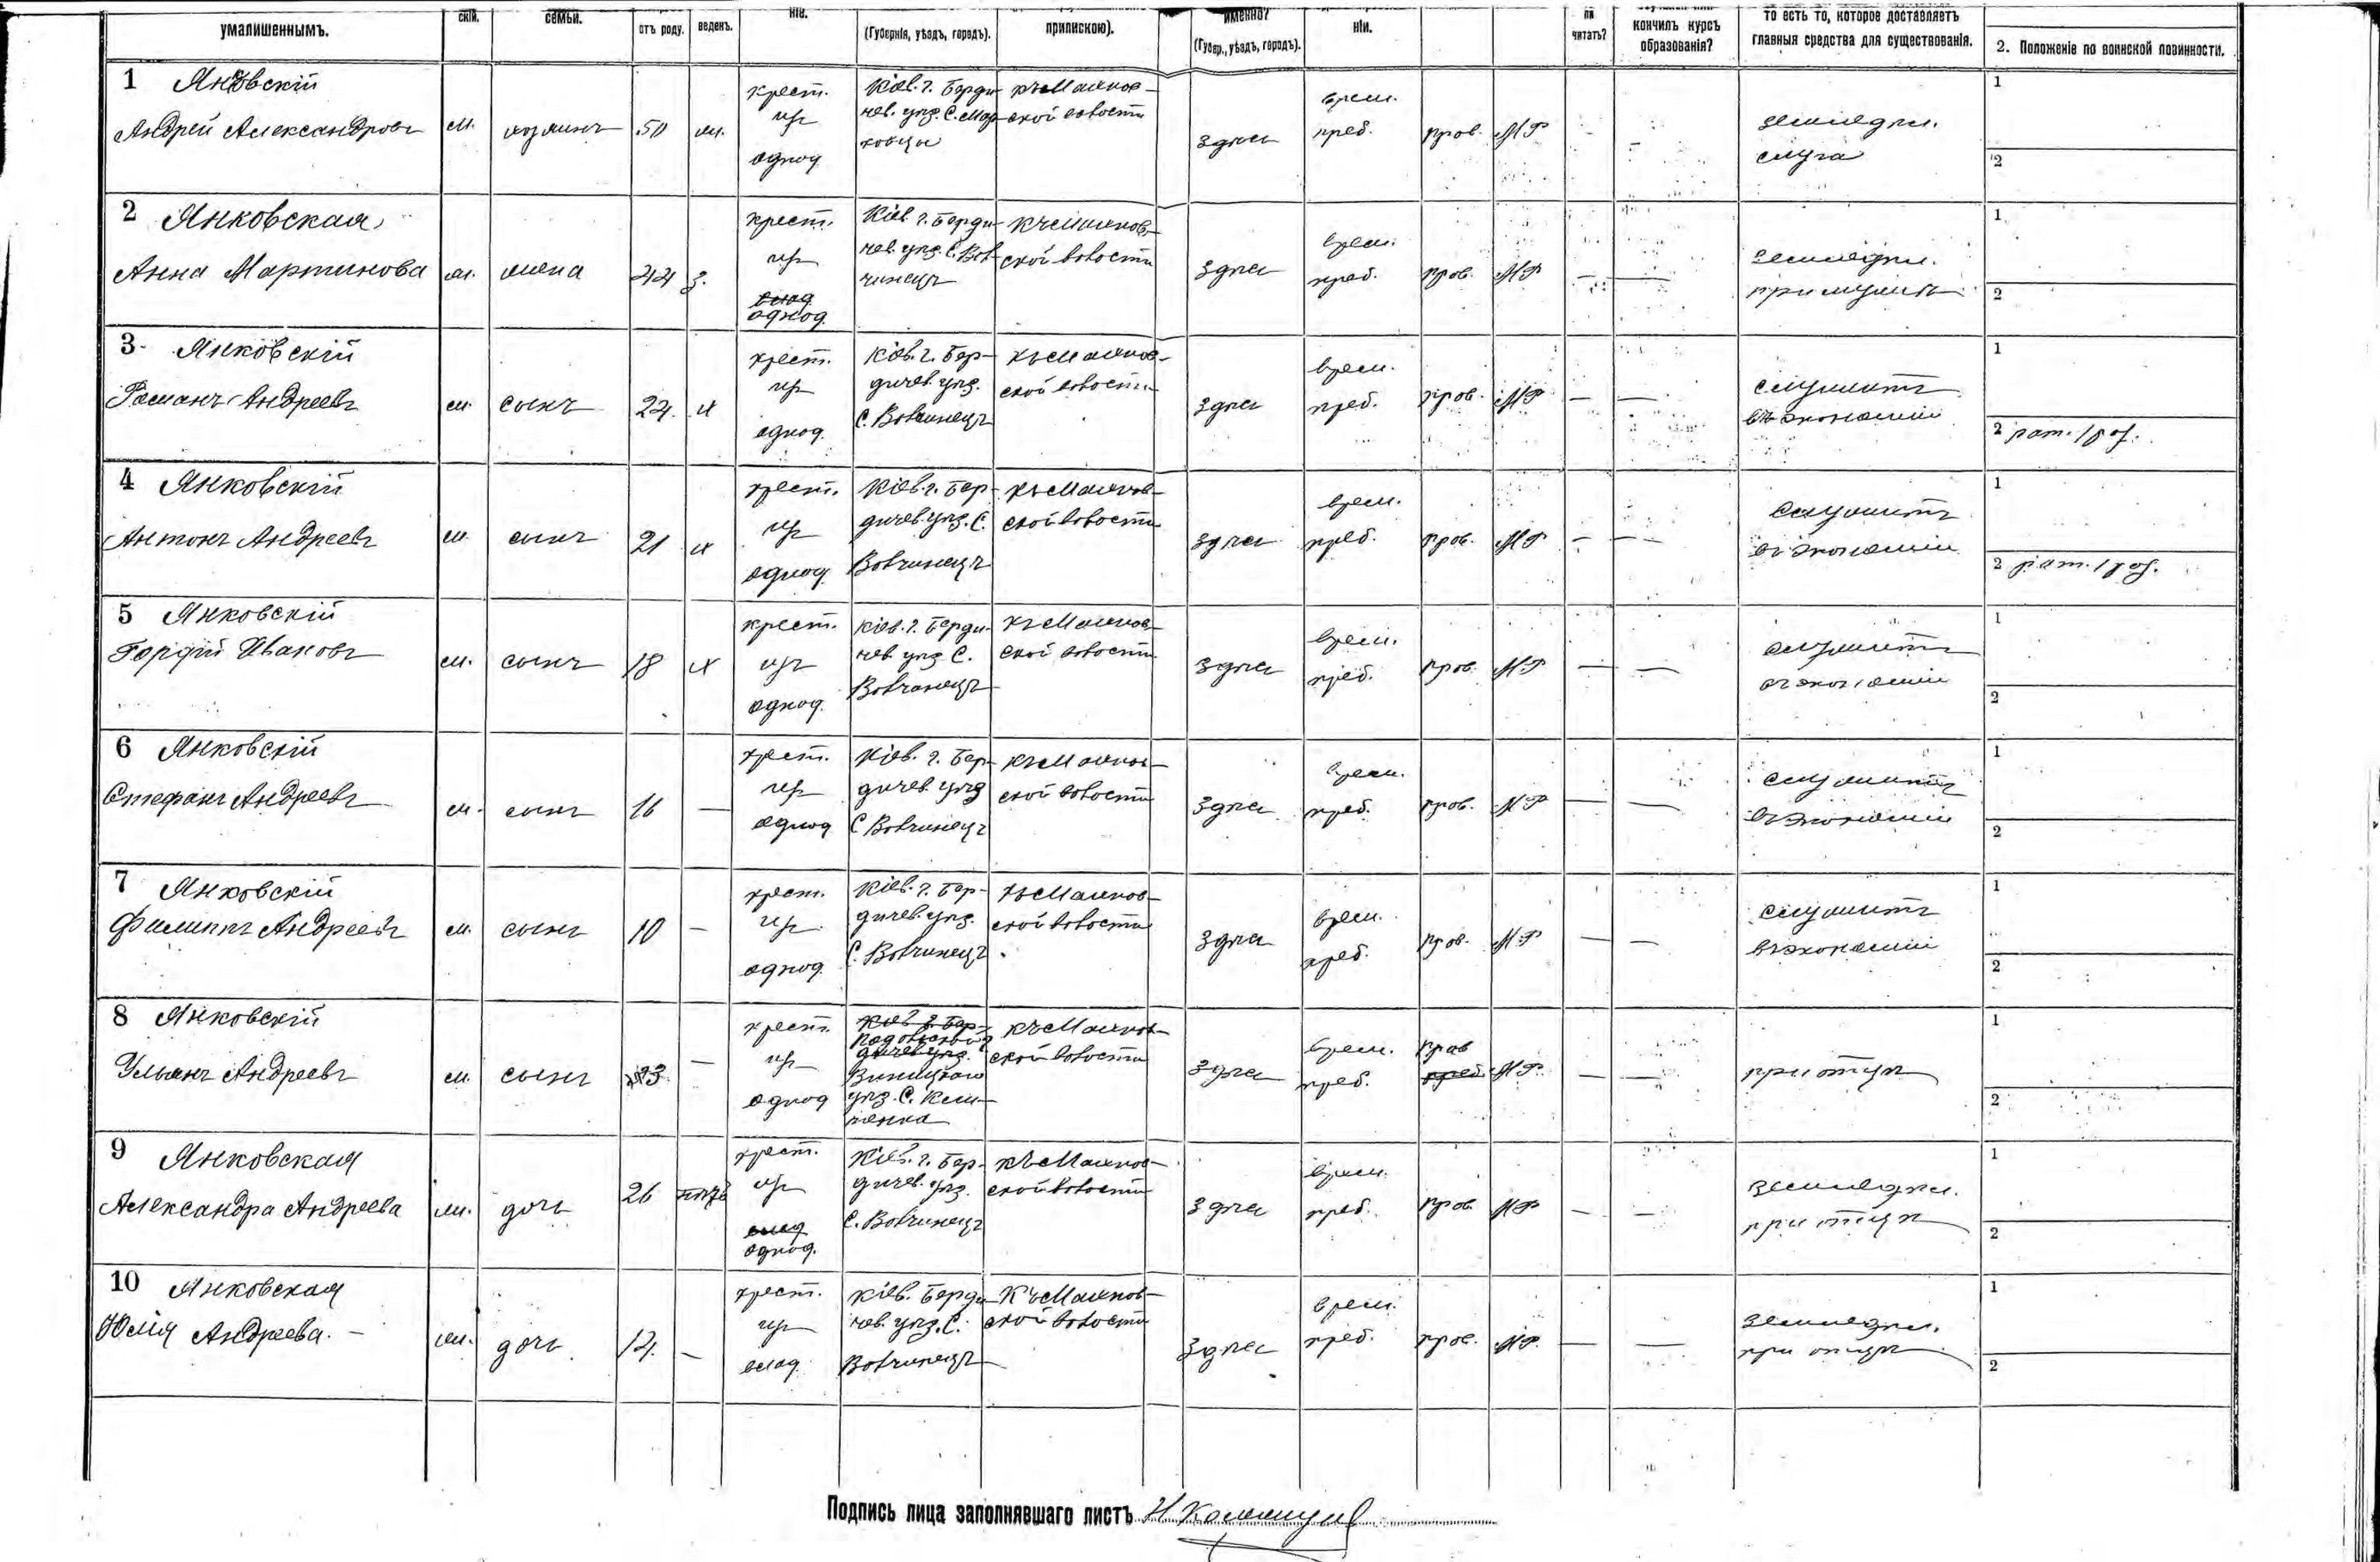 умалишеннымъ.
скій.
семьи.
отъ роду.
веденъ.
ніе.
(Губернія, уѣздъ, городъ).
припискою).
именно?
(Губер., уѣздъ, городъ).
ніи.
ли
читать?
кончилъ курсъ
образованія?
то есть то, которое доставляетъ
главныя средства для существованія.
2. Положеніе по воинской повинности.
1 Янковскій
Андрей Александровъ
м.
хозяинъ
50
жен.
крест.
из
однод.
Кіев. г. Берди
чев. уѣз. С. Мар
ковцы
къ Махнов-
ской волости
здѣсь
врем.
преб.
прав.
МР
—
—
земледѣл.
слуга
1
2
2 Янковская
Анна Мартинова
ж.
жена
44
з.
крест.
из
однод.
Кіев. г. Берди
чев. уѣз. С. Вов
чинецъ
къ Махнов-
ской волости
здѣсь
врем.
преб.
прав.
МР
—
—
земледѣл.
при мужѣ
1
2
3 Янковскій
Романъ Андреевъ
м.
сынъ
24.
х
крест.
из
однод.
Кіев. г. Бер-
дичев. уѣз.
С. Вовчинецъ
къ Махнов-
ской волости
здѣсь
врем.
преб.
прав.
МР
—
—
служитъ
въ экономіи
1
2 рат. 1 раз.
4 Янковскій
Антонъ Андреевъ
м.
сынъ
21
х
крест.
из
однод.
Кіев. г. Бер-
дичев. уѣз. С.
Вовчинецъ
къ Махнов-
ской волости
здѣсь
врем.
преб.
прав.
МР
—
—
служитъ
въ экономіи
1
2 рат. 1 раз.
5 Янковскій
Гордій Ивановъ
м.
сынъ
18
х
крест.
из
однод.
Кіев. г. Берди-
чев. уѣз. С.
Вовчинецъ
къ Махнов-
ской волости
здѣсь
врем.
преб.
прав.
МР
—
—
служитъ
въ экономіи
1
2
6 Янковскій
Стефанъ Андреевъ
м.
сынъ
16
—
крест.
из
однод
Кіев. г. Бер-
дичев. уѣз
С Вовчинецъ
къ Махнов-
ской волости
здѣсь
врем.
преб.
прав.
МР
—
—
служитъ
въ экономіи
1
2
7 Янковскій
Филиппъ Андреевъ
м.
сынъ
10
—
крест.
из
однод.
Кіев. г. Бер-
дичев. уѣз.
С. Вовчинецъ
къ Махнов-
ской волости
здѣсь
врем.
преб.
прав.
МР
—
—
служитъ
въ экономіи
1
2
8 Янковскій
Ульянъ Андреевъ
м.
сынъ
3
—
крест.
из
однод
Кіев г. Бер-
Подольской г
дичев уѣз.
Виницкаго
уѣз. С.
къ Махнов-
ской волости
здѣсь
врем.
преб.
прав
преб.
МР
—
—
при отцѣ
1
2
9 Янковская
Александра Андреева
ж.
дочь
26
крест.
из
однод.
Кіев. г. Бер-
дичев. уѣз.
С. Вовчинецъ
къ Махнов-
ской волости
здѣсь
врем.
преб.
прав
МР
—
—
земледѣл.
при отцѣ
1
2
10 Янковская
Юлія Андреева. -
ж.
дочь
12.
—
крест.
из
Кіев. Берди-
чев. уѣз. С.
Вовчинецъ
Къ Махнов-
ской волости
здѣсь
врем.
преб.
прав.
МР.
—
—
земледѣл.
при отцѣ
1
2
Подпись лица заполнявшаго листъ